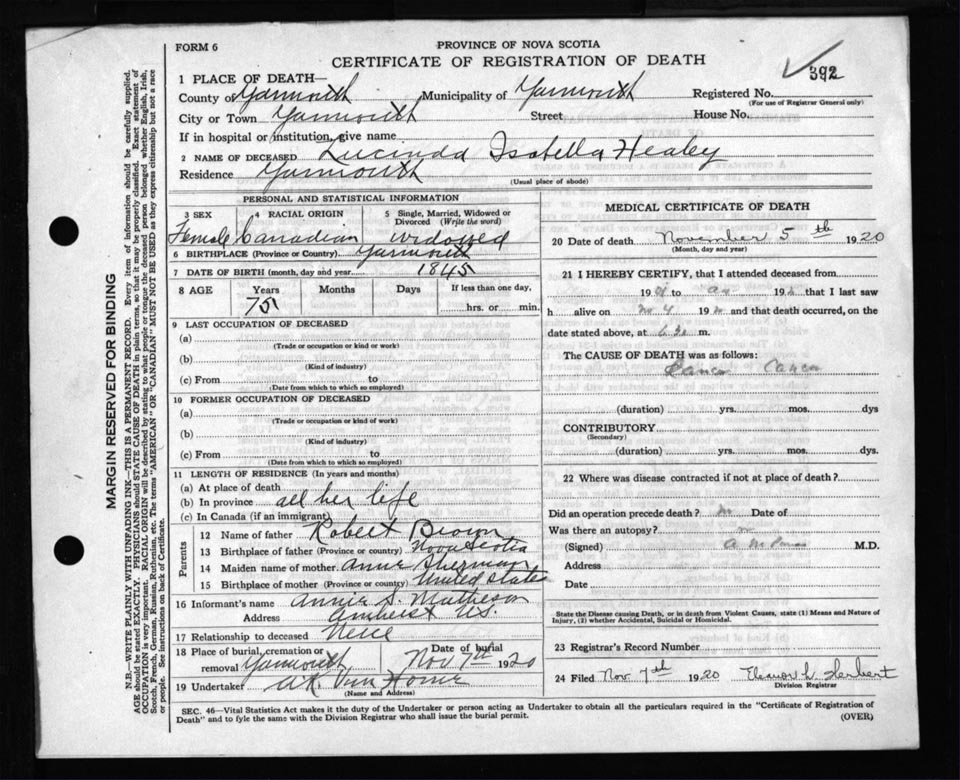 FORM 6
PROVINCE OF NOVA SCOTIA
CERTIFICATE OF REGISTRATION OF DEATH
392
1 PLACE OF DEATH—
County of Yarmouth Municipality of Yarmouth Registered No.
(For use of Registrar General only)
City or Town Yarmouth Street House No.
If in hospital or institution, give name
2 NAME OF DECEASED Lucinda Isabella Healey
Residence Yarmouth
(Usual place of abode)
PERSONAL AND STATISTICAL INFORMATION
3 SEX 4 RACIAL ORIGIN 5 Single, Married, Widowed or Divorced (Write the word)
Female Canadian widowed
6 BIRTHPLACE (Province or Country) Yarmouth
7 DATE OF BIRTH (month, day and year) 1845
8 AGE Years Months Days If less than one day,
75 hrs. or min.
9 LAST OCCUPATION OF DECEASED
(a)
(Trade or occupation or kind or work)
(b)
(Kind of industry)
(c) From to
(Date from which to which so employed)
10 FORMER OCCUPATION OF DECEASED
(a)
(Trade or occupation or kind of work)
(b)
(Kind of industry)
(c) From to
(Date from which to which so employed)
11 LENGTH OF RESIDENCE (In years and months)
(a) At place of death
(b) In province all her life
(c) In Canada (if an immigrant)
Parents
12 Name of father Robert Brown
13 Birthplace of father (Province or country) Nova Scotia
14 Maiden name of mother Annie Sherman
15 Birthplace of mother (Province or country) United States
16 Informant's name Annie S. Matheson
Address Amherst N.S.
17 Relationship to deceased Neice
18 Place of burial, cremation or removal Yarmouth Date of burial Nov 7th 1920
19 Undertaker A K Van Horne
(Name and Address)
MEDICAL CERTIFICATE OF DEATH
20 Date of death November 5th 1920
(Month, day and year)
21 I HEREBY CERTIFY, that I attended deceased from
19 to 19 that I last saw
h alive on 19 and that death occurred, on the
date stated above, at m.
The CAUSE OF DEATH was as follows:
Cancer
(duration) yrs. mos. dys
CONTRIBUTORY
(Secondary)
(duration) yrs. mos. dys.
22 Where was disease contracted if not at place of death?
Did an operation precede death? Date of
Was there an autopsy?
(Signed) M.D.
Address
Date
State the Disease causing Death, or in death from Violent Causes, state (1) Means and Nature of
Injury, (2) whether Accidental, Suicidal or Homicidal.
23 Registrar's Record Number
24 Filed Nov. 7th 1920 Eleanor L. Herbert
Division Registrar
SEC. 46—Vital Statistics Act makes it the duty of the Undertaker or person acting as Undertaker to obtain all the particulars required in the "Certificate of Registration of
Death" and to fyle the same with the Division Registrar who shall issue the burial permit.
(OVER)
MARGIN RESERVED FOR BINDING
N.B.—WRITE PLAINLY WITH UNFADING INK—THIS IS A PERMANENT RECORD. Every item of information should be carefully supplied.
AGE should be stated EXACTLY. PHYSICIANS should STATE CAUSE OF DEATH in plain terms, so that it may be properly classified. Exact statement of
OCCUPATION is very important. RACIAL ORIGIN will be described by stating to what people or tongue the deceased person belonged whether English, Irish,
Scotch, French, German, Russian, Ruthenian, etc. The terms "AMERICAN" OR "CANADIAN" MUST NOT BE USED as they express citizenship but not a race
or people. See instructions on back of Certificate.